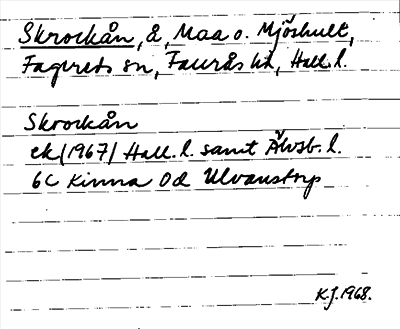 Skrockån, å, Maa o. Mjöshult,
Fagereds sn, Faurås hd, Hall. l.
Skrockån
ek (1967) Hall. l. samt Älvsb. l.
6C Kinna Öd Ulvanstorp
K.J. 1968.